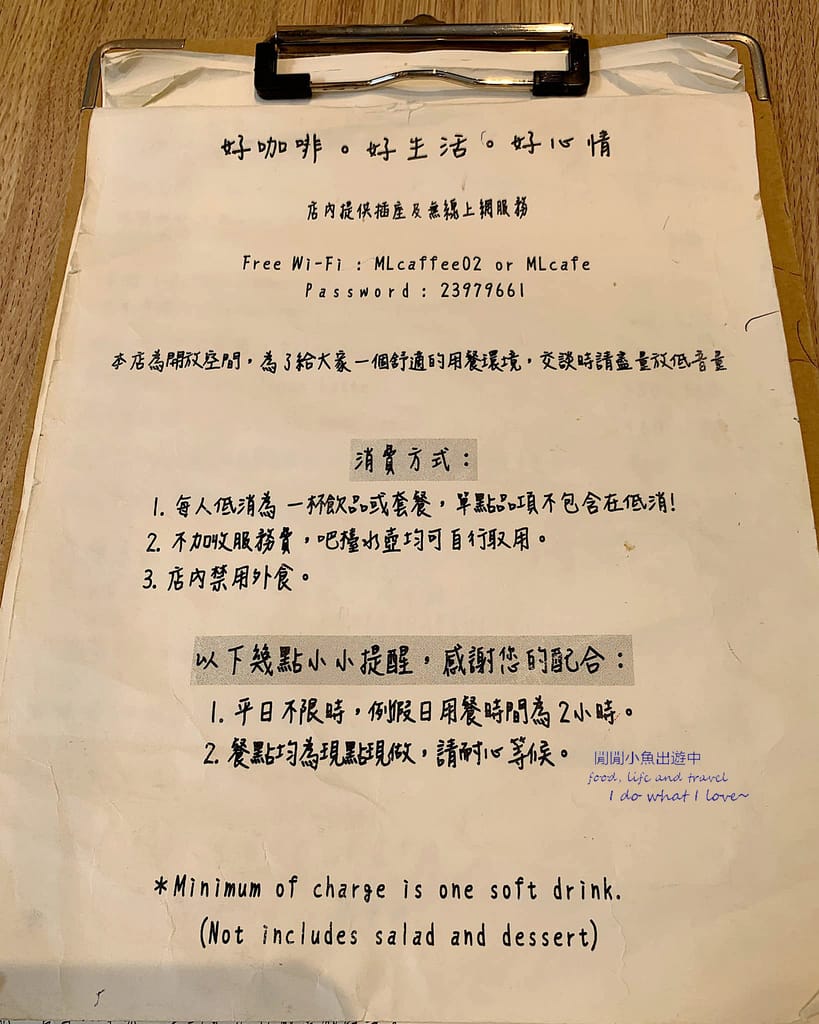 好咖啡。好生活。好心情
店內提供插座及無線上網服務
Free Wi-Fi : MLcaffee02 or MLcafe
Password : 23979661
本店為開放空間，為了給大家一個舒適的用餐環境，交談時請盡量放低音量
消費方式：
1. 每人低消為一杯飲品或套餐，單點品項不包含在低消!
2. 不加收服務費，吧檯水壺均可自行取用。
3. 店內禁用外食。
以下幾點小小提醒，感謝您的配合：
1. 平日不限時，例假日用餐時間為2小時。
2. 餐點均為現點現做，請耐心等候。
閒閒小魚出遊中
food, life and travel
I do what I love~
*Minimum of charge is one soft drink.
(Not includes salad and dessert)